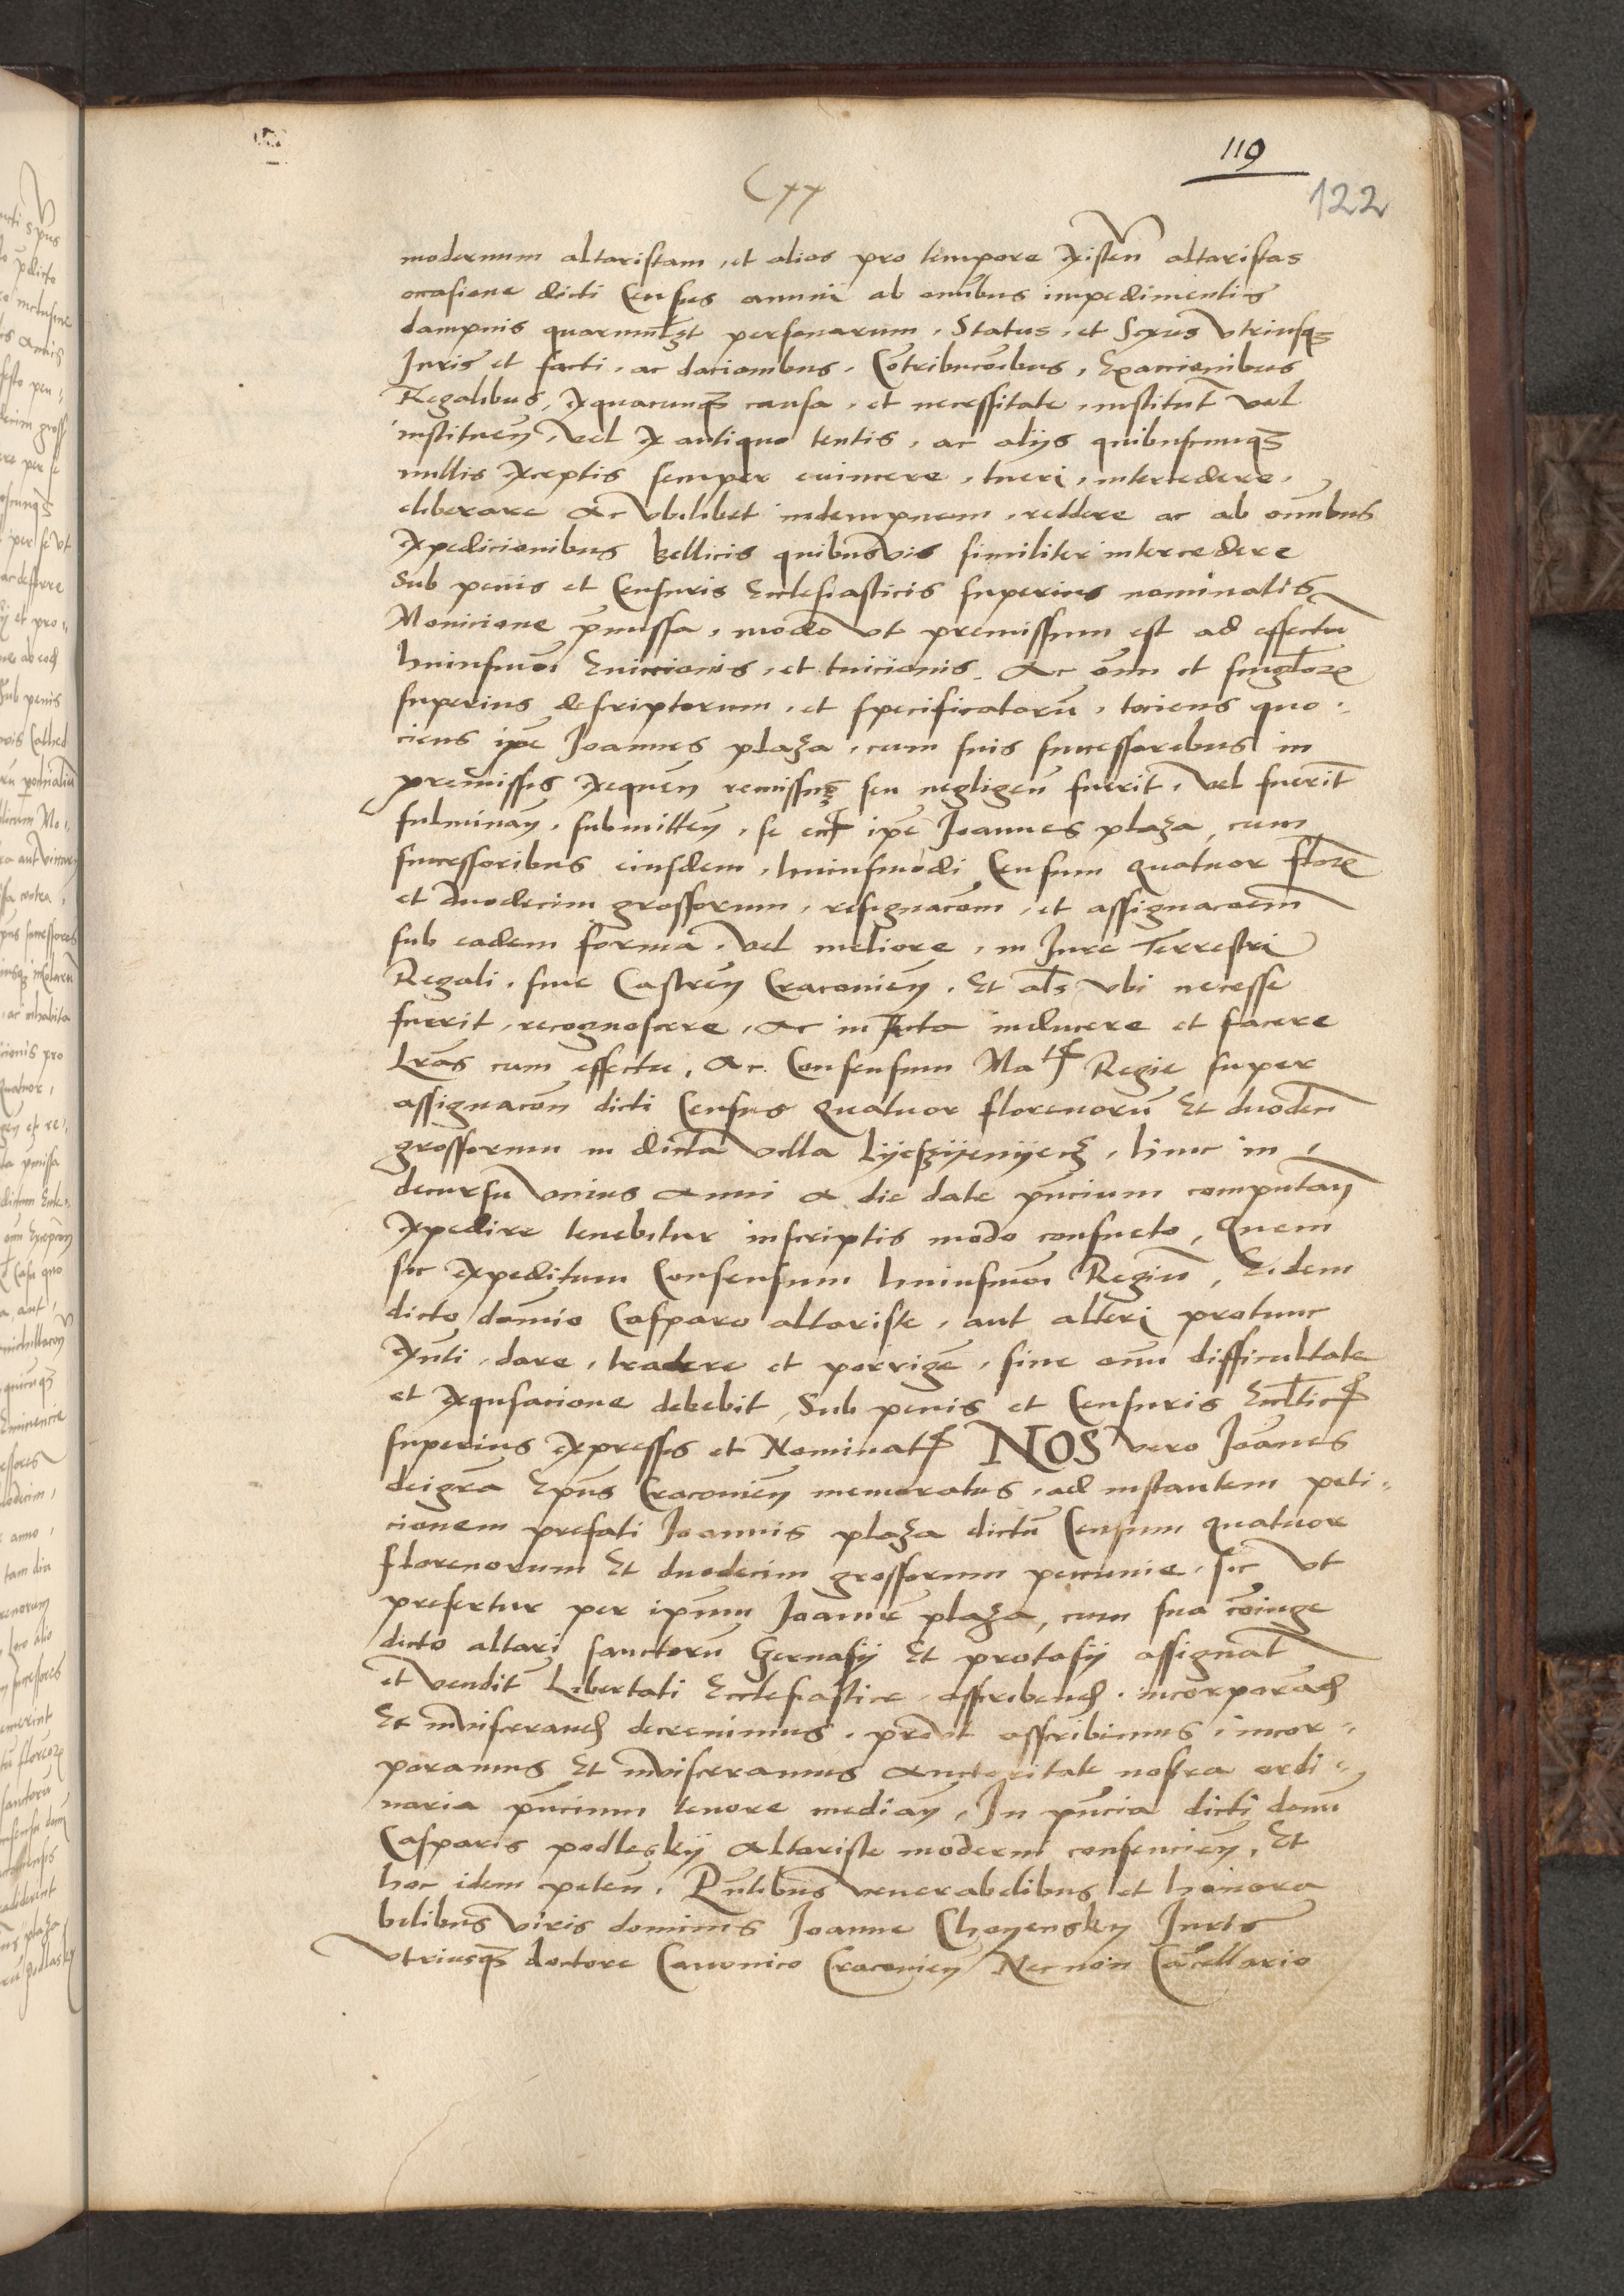 119
Cxx
122
modernum altaristam, et alios pro tempore existen altaristas
occasione dicti Census annui ab omnibus impedimentis
dampnis quarumlibet personarum, Status, et Sexus vtriusqz
Juris et facti, ac dacionibus, Contribucoibus, Exaccionibus
Regalibus, exquacunqz causa, et necessitate, institut vel
instituen, vel ex antiquo tentis, ac alijs quibuscunqz
nullis exceptis semper euincere, tueri, intercedere,
eliberare ac vbilibet indempnem, reddere ac ab omnibus
expedicionibus bellicis quibusuis similiter intercedere
Sub penis et Censuris Ecclesiasticis superius nominatis
Monicione pmissa, modo vt premissum est ad effectu
huiusmoi Euiccionis, et tuicionis. Ac oim et singlorz
superius descriptorum, et specificatoru, tociens quo-
ciens ipe Joannes plaza, cum suis successoribus in
premissis exequen remissus seu negligens fuerit, vel fuerit
fulminan, submitten, se ipe Joannes plaza, cum
successoribus eiusdem, huiusmodi Censum quatuor florz
et duodecim grossorum, resignacom, et assignacoem
sub eadem forma, vel meliore, in Jure Terrestri
Regali, siue Castren Cracouien, Et als vbi necesse
fuerit, recognoscere, ac in Acta inducere et facere
Lras cum effectu, Ac Consensum Matis Regie super
assignacon dicti Census quatuor florenoru Et duodeci
grossorum in dicta villa Lyeszyenyecz, hinc in,
decursu vnius anni a die date pncium computan
expedire tenebitur inscriptis modo consueto, Quem
sic expeditum Consensum huiusmoi Regiu, Eidem
dicto domio Casparo altariste, aut alteri protunc
exnti, dare, tradere et porrige, sine omi difficultate
et exqusacione debebit, Sub penis et Censuris Eccltic
superius expressis et Nominat NOS vero Joanes
deigra Epus Cracouien memoratus, ad instantem peti-
cionem prefati Joannis plaza dictu Censum quatuor
florenorum Et duodecim grossorum pecunie, sic vt
prefertur per ipsum Joanne plaza, cum sua coiuge
dicto altari sanctoru Geruasij Et protasij assignat
et vendit Libertati Ecclesiastice, asscribend, incorporad
Et inuiscerand decreuimus, prout asscribimus, incor-
poramus Et inuisceramus auctoritate nostra ordi-
naria pncium tenore median, In pncia dicti domi
Casparis podleskij Altariste moderni consencien, Et
hoc idem peten, Pntibus venerabilibus et honora
bilibus viris dominis Joanne Choyensky Juris
vtriusqz doctore Canonico Cracouien Necnon Cacellario